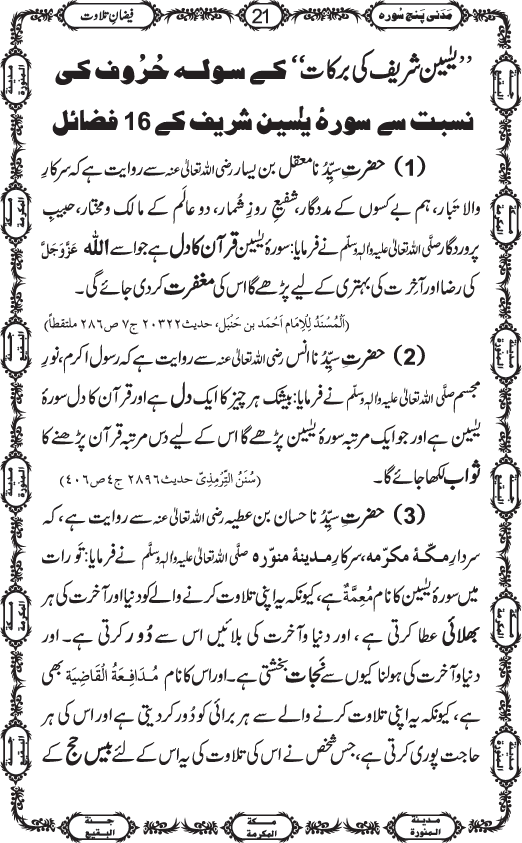 مَدَنی پَنج سُورہ
21
فیضانِ تلاوت
’’یٰسین شریف کی برکات‘‘ کے سولہ حُرُوف کی
نسبت سے سورۂ یٰسین شریف کے 16 فضائل
(1) حضرتِ سیِّدُنا معقل بن یسار رضی اللہ تعالیٰ عنہ سے روایت ہے کہ سرکارِ
والا تَبار، ہم بے کسوں کے مددگار، شفیعِ روزِ شُمار، دو عالَم کے مالک و مختار، حبیبِ
پروردگار صلَّی اللہ تعالیٰ علیہ والہٖ وسلَّم نے فرمایا: سورۂ یٰسین قرآن کا دل ہے جو اسے اللہ عَزَّوَجَلَّ
کی رضا اور آخِرت کی بہتری کے لیے پڑھے گا اس کی مغفرت کر دی جائے گی۔
(اَلْمُسْنَدُ لِلْاِمَام اَحْمَد بن حَنْبَل، حدیث۲۰۳۲۲ ج۷ ص۲۸۶ ملتقطاً)
(2) حضرتِ سیِّدُنا انس رضی اللہ تعالیٰ عنہ سے روایت ہے کہ رسول اکرم، نورِ
مجسم صلَّی اللہ تعالیٰ علیہ والہٖ وسلَّم نے فرمایا: بیشک ہر چیز کا ایک دل ہے اور قرآن کا دل سورۂ
یٰسین ہے اور جو ایک مرتبہ سورۂ یٰسین پڑھے گا اس کے لیے دس مرتبہ قرآن پڑھنے کا
ثواب لکھا جائے گا۔ (سُنَنُ التِّرمِذِیّ حدیث۲۸۹۶ ج۴ ص۴۰۶)
(3) حضرتِ سیِّدُنا حسان بن عطیہ رضی اللہ تعالیٰ عنہ سے روایت ہے، کہ
سردارِ مکّۂ مکرمہ، سرکارِ مدینۂ منورہ صلَّی اللہ تعالیٰ علیہ والہٖ وسلَّم نے فرمایا: تَورات
میں سورۂ یٰسین کا نام مُعِمَّةٌ ہے، کیونکہ یہ اپنی تلاوت کرنے والے کو دنیا اور آخرت کی ہر
بھلائی عطا کرتی ہے، اور دنیا و آخرت کی بلائیں اس سے دُور کرتی ہے۔ اور
دنیا و آخرت کی ہولناکیوں سے نَجات بخشتی ہے۔ اور اس کا نام مُدَافِعَةُ الْقَاضِیَة بھی
ہے، کیونکہ یہ اپنی تلاوت کرنے والے سے ہر برائی کو دُور کر دیتی ہے اور اس کی ہر
حاجت پوری کرتی ہے، جس شخص نے اس کی تلاوت کی یہ اس کے لئے بیس حج کے
مدینة المنورة
مكة المكرمة
جنة البقيع